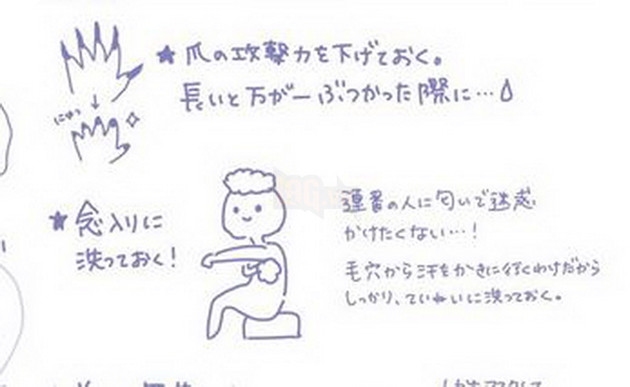 ★爪の攻撃力を下げておく。
長いと万が一ぶつかった際に…
にゅっ
★念入りに
洗っておく!
連番の人に匂いで迷惑
かけたくない…!
毛穴から汗をかきに行くわけだから
しっかり、ていねいに洗っておく。